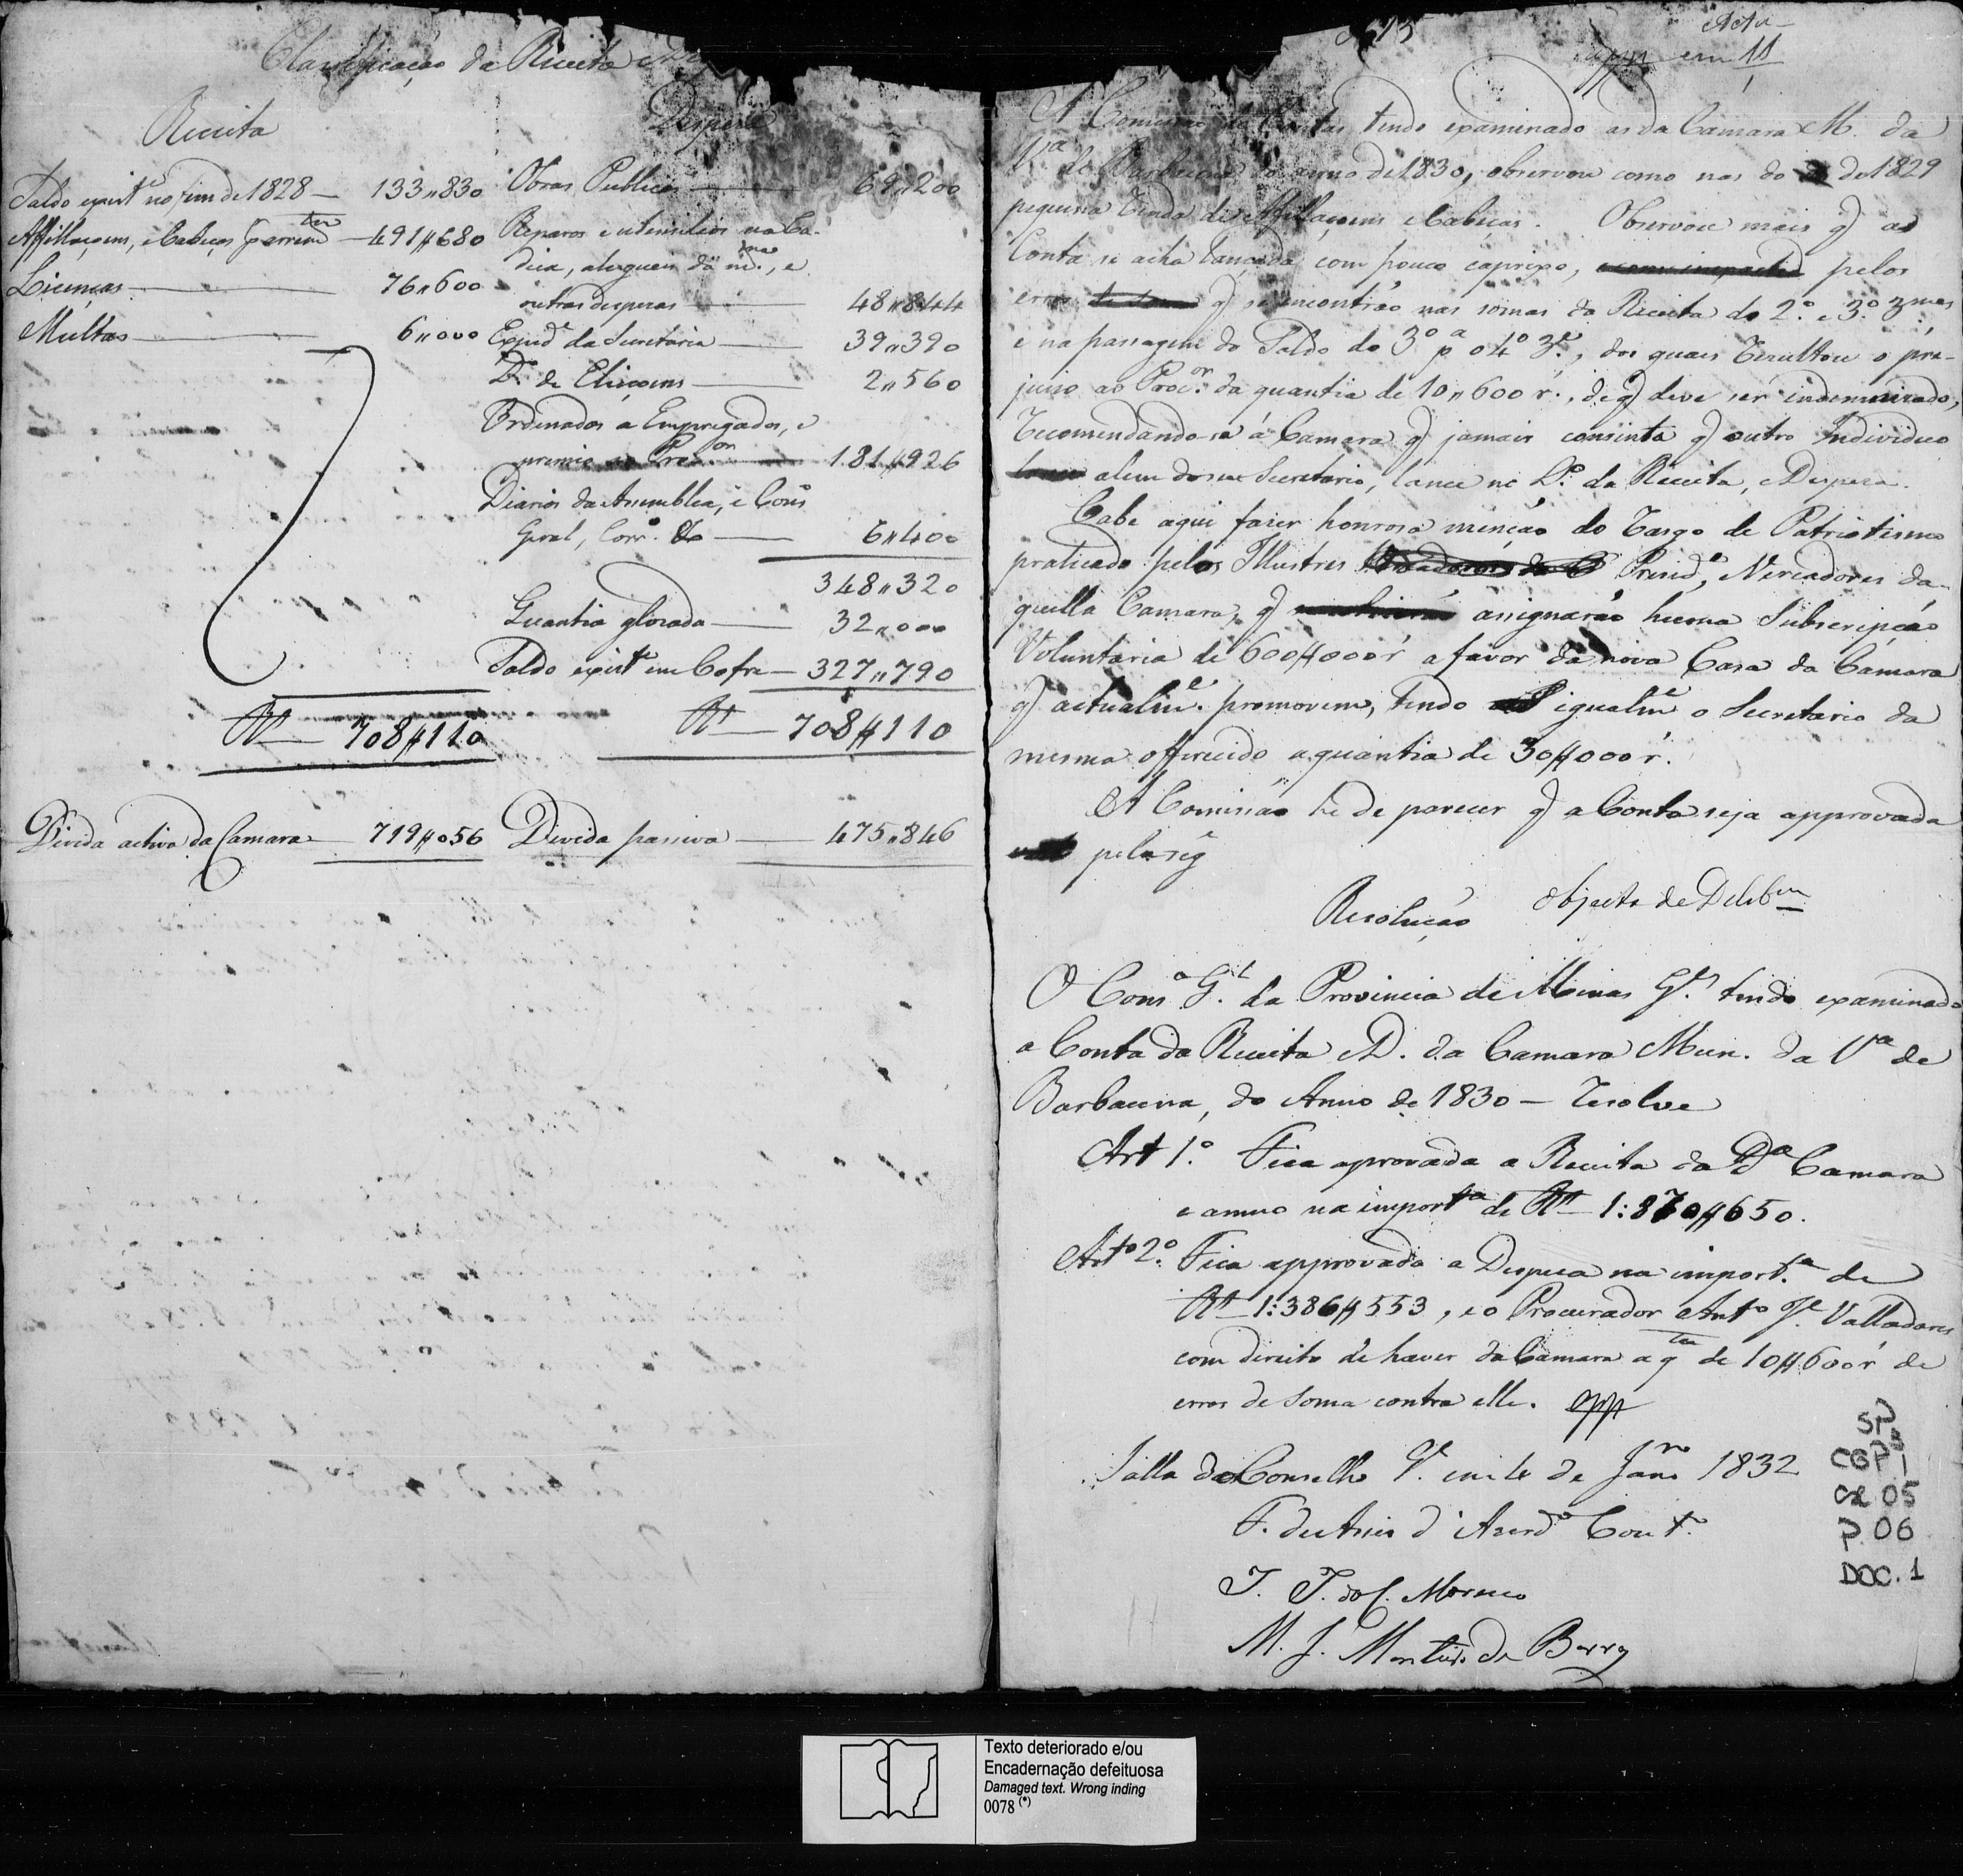 Classificação da Receita e De
Receita
Saldo exist.e no fim de 1828 — 133,,830
Affillaçoens, e Cabeças — 491#680
Licenças — 76,,600
Multas — 6,,000
R.s — 708#110
Divida activa da Camara — 719#056
Despesa
Obras Publicas — 69,,200
Reparos e utensilios na Ca-
deia, alugueis da m.ma, e
outras despesas — 48,,844
Exped.e da Secretaria — 39,,390
D.o de Eliçoens — 2,,560
Ordenados a Empregados, e
premio ao Proc.or — 181#926
Diarios da Assemblea, e Cons.o
Geral, Corr.o &a — 6#400
348,,320
Quantia glosada — 32,,000
Saldo exist.e em Cofre — 327,,790
R.s — 708#110
Devida passiva — 475,,846
N 15
Acta
app em 11
A Comissão de Contas, tendo examinado as da Camara M. da
V.a de Barbacena do anno de 1830, observou como nas do de 1829
pequena renda de Affillaçoens e Cabeças. Observou mais q' as
Conta se acha lançada com pouco caprixo, pelos
erros q' se encontrão nas somas da Receita do 2.o e 3.o 3.mes
e na passagem do Saldo do 3.o p.a o 4.o 3.e, dos quais resultou o pre-
juiso ao Proc.or da quantia de 10,,600 r.s, de q' deve ser indemnisado,
recomendando-se á Camara q' jamais consinta q' outro Individuo
alem do seu Secretario, lance no L.o da Receita, e Despesa.
Cabe aqui faser honrosa menção do rasgo de Patriotismo
praticado pelos Illustres Presid.e, e Vereadores da-
quella Camara, q' assignarão huma Subscripção
Voluntaria de 600#000 r.s a favor da nova Casa da Camara
q' actualm.e promovem, tendo igualm.e o Secretario da
mesma offerecido a quantia de 30#000 r.s
A Comissão he de parecer q' a Conta seja approvada
pela seg.e
Resolução objecto de Delib.am
O Cons.o G.l da Provincia de Minas G.s tendo examinado
a Conta da Receita e D. da Camara Mun. da V.a de
Barbacena, do Anno de 1830 — resolve
Art 1.o Fica aprovada a Receita da D.a Camara
e anno na import.a de R.s 1:870#650.
Art.o 2.o Fica approvada a Despesa na import.a de
R.s 1:386#553, e o Procurador Ant.o J.e Valladares
com direito de haver da Camara a q.tia de 10#600 r.s de
erros de soma contra elle. app
Salla do Conselho G.l em 4 de Jan.ro 1832
F. de Assis d'Azerd.o Cout.o
J. J. do C. Moreno
M. J. Monteiro de Barros
SP
CGP 1
CX. 05
P. 06
DOC. 1
Texto deteriorado e/ou
Encadernação defeituosa
Damaged text. Wrong inding
0078 (*)